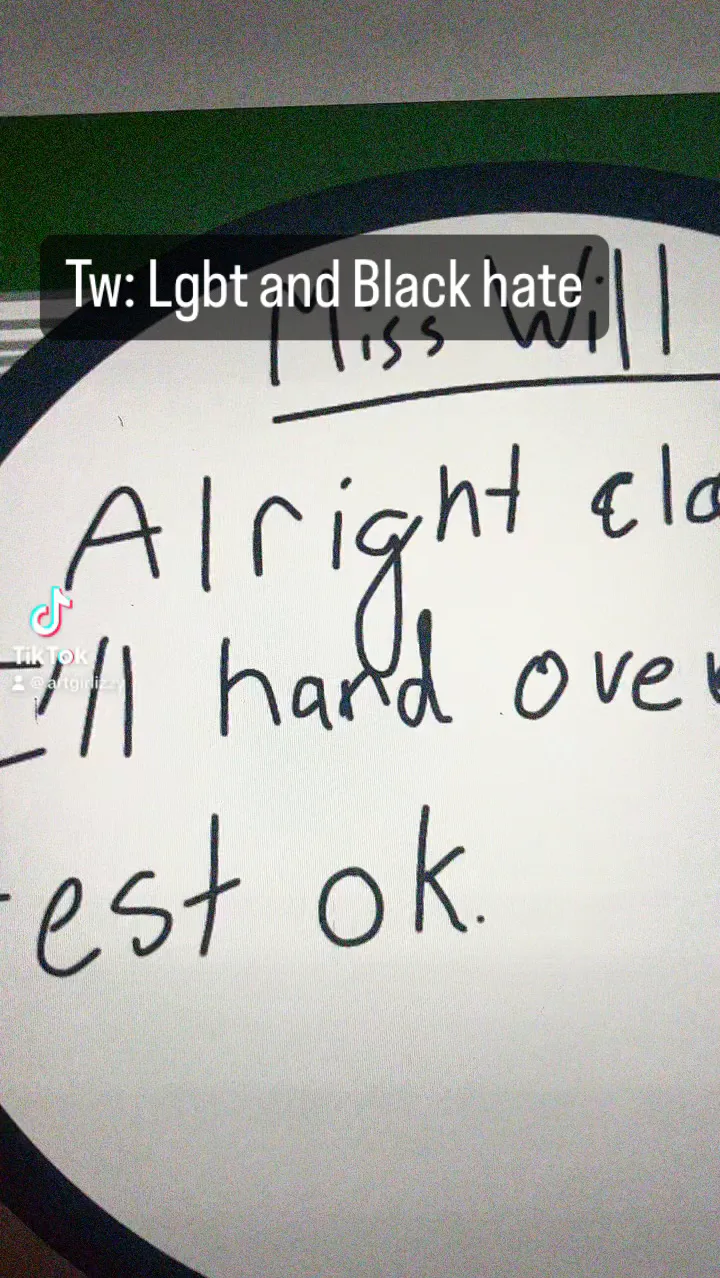 Tw: Lgbt and Black hate
Miss Will
Alright cla
I'll hand over
test ok.
TikTok
@artgirlizzy